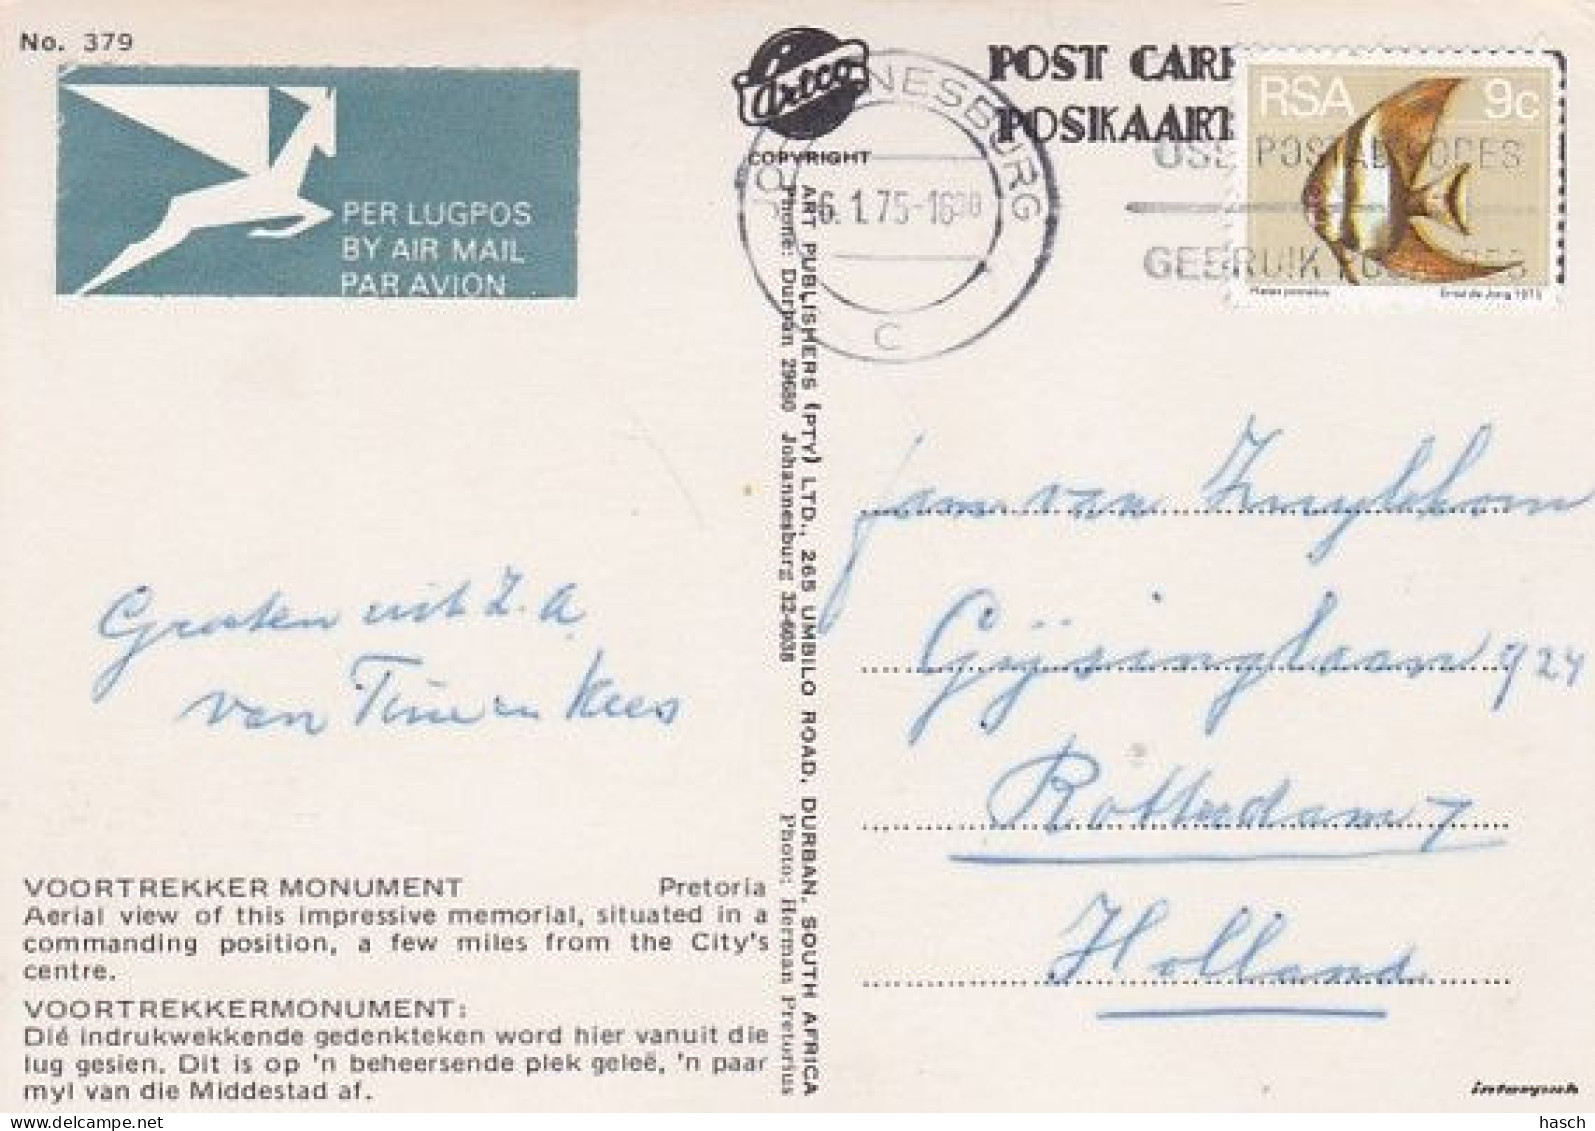 No. 379
PER LUGPOS
BY AIR MAIL
PAR AVION
Artco
COPYRIGHT
POST CAR
POSKAAR
NESBURG
6.1.75-16
C
USE POSTAL CODES
GEBRUIK
RSA 9c
ART PUBLISHERS (PTY) LTD., 265 UMBILO ROAD, DURBAN, SOUTH AFRICA
Phone: Durban 29680 Johannesburg 32-6038 Photo: Herman Pretorius
Groeten uit Z.A.
van Tine en Kees
Gijsinglaan 924
Rotterdam 7
Holland
VOORTREKKER MONUMENT Pretoria
Aerial view of this impressive memorial, situated in a
commanding position, a few miles from the City's
centre.
VOORTREKKERMONUMENT:
Dié indrukwekkende gedenkteken word hier vanuit die
lug gesien. Dit is op 'n beheersende plek geleë, 'n paar
myl van die Middestad af.
interpub
hasch